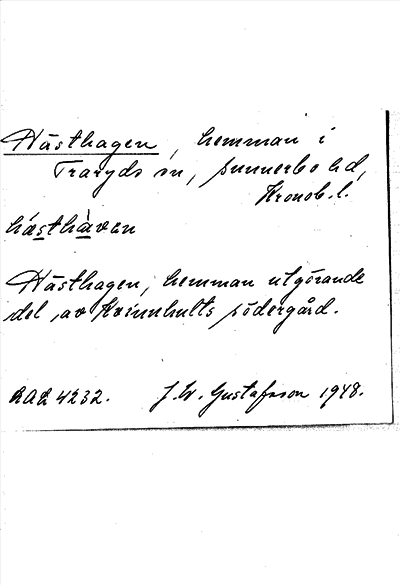 Hästhagen, hemman i
Traryds sn, Sunnerbo hd,
Kronob. l.
hästhàvan
Hästhagen, hemman utgörande
del av Kvinnhults södergård.
4232. J. W. Gustafsson 1948.